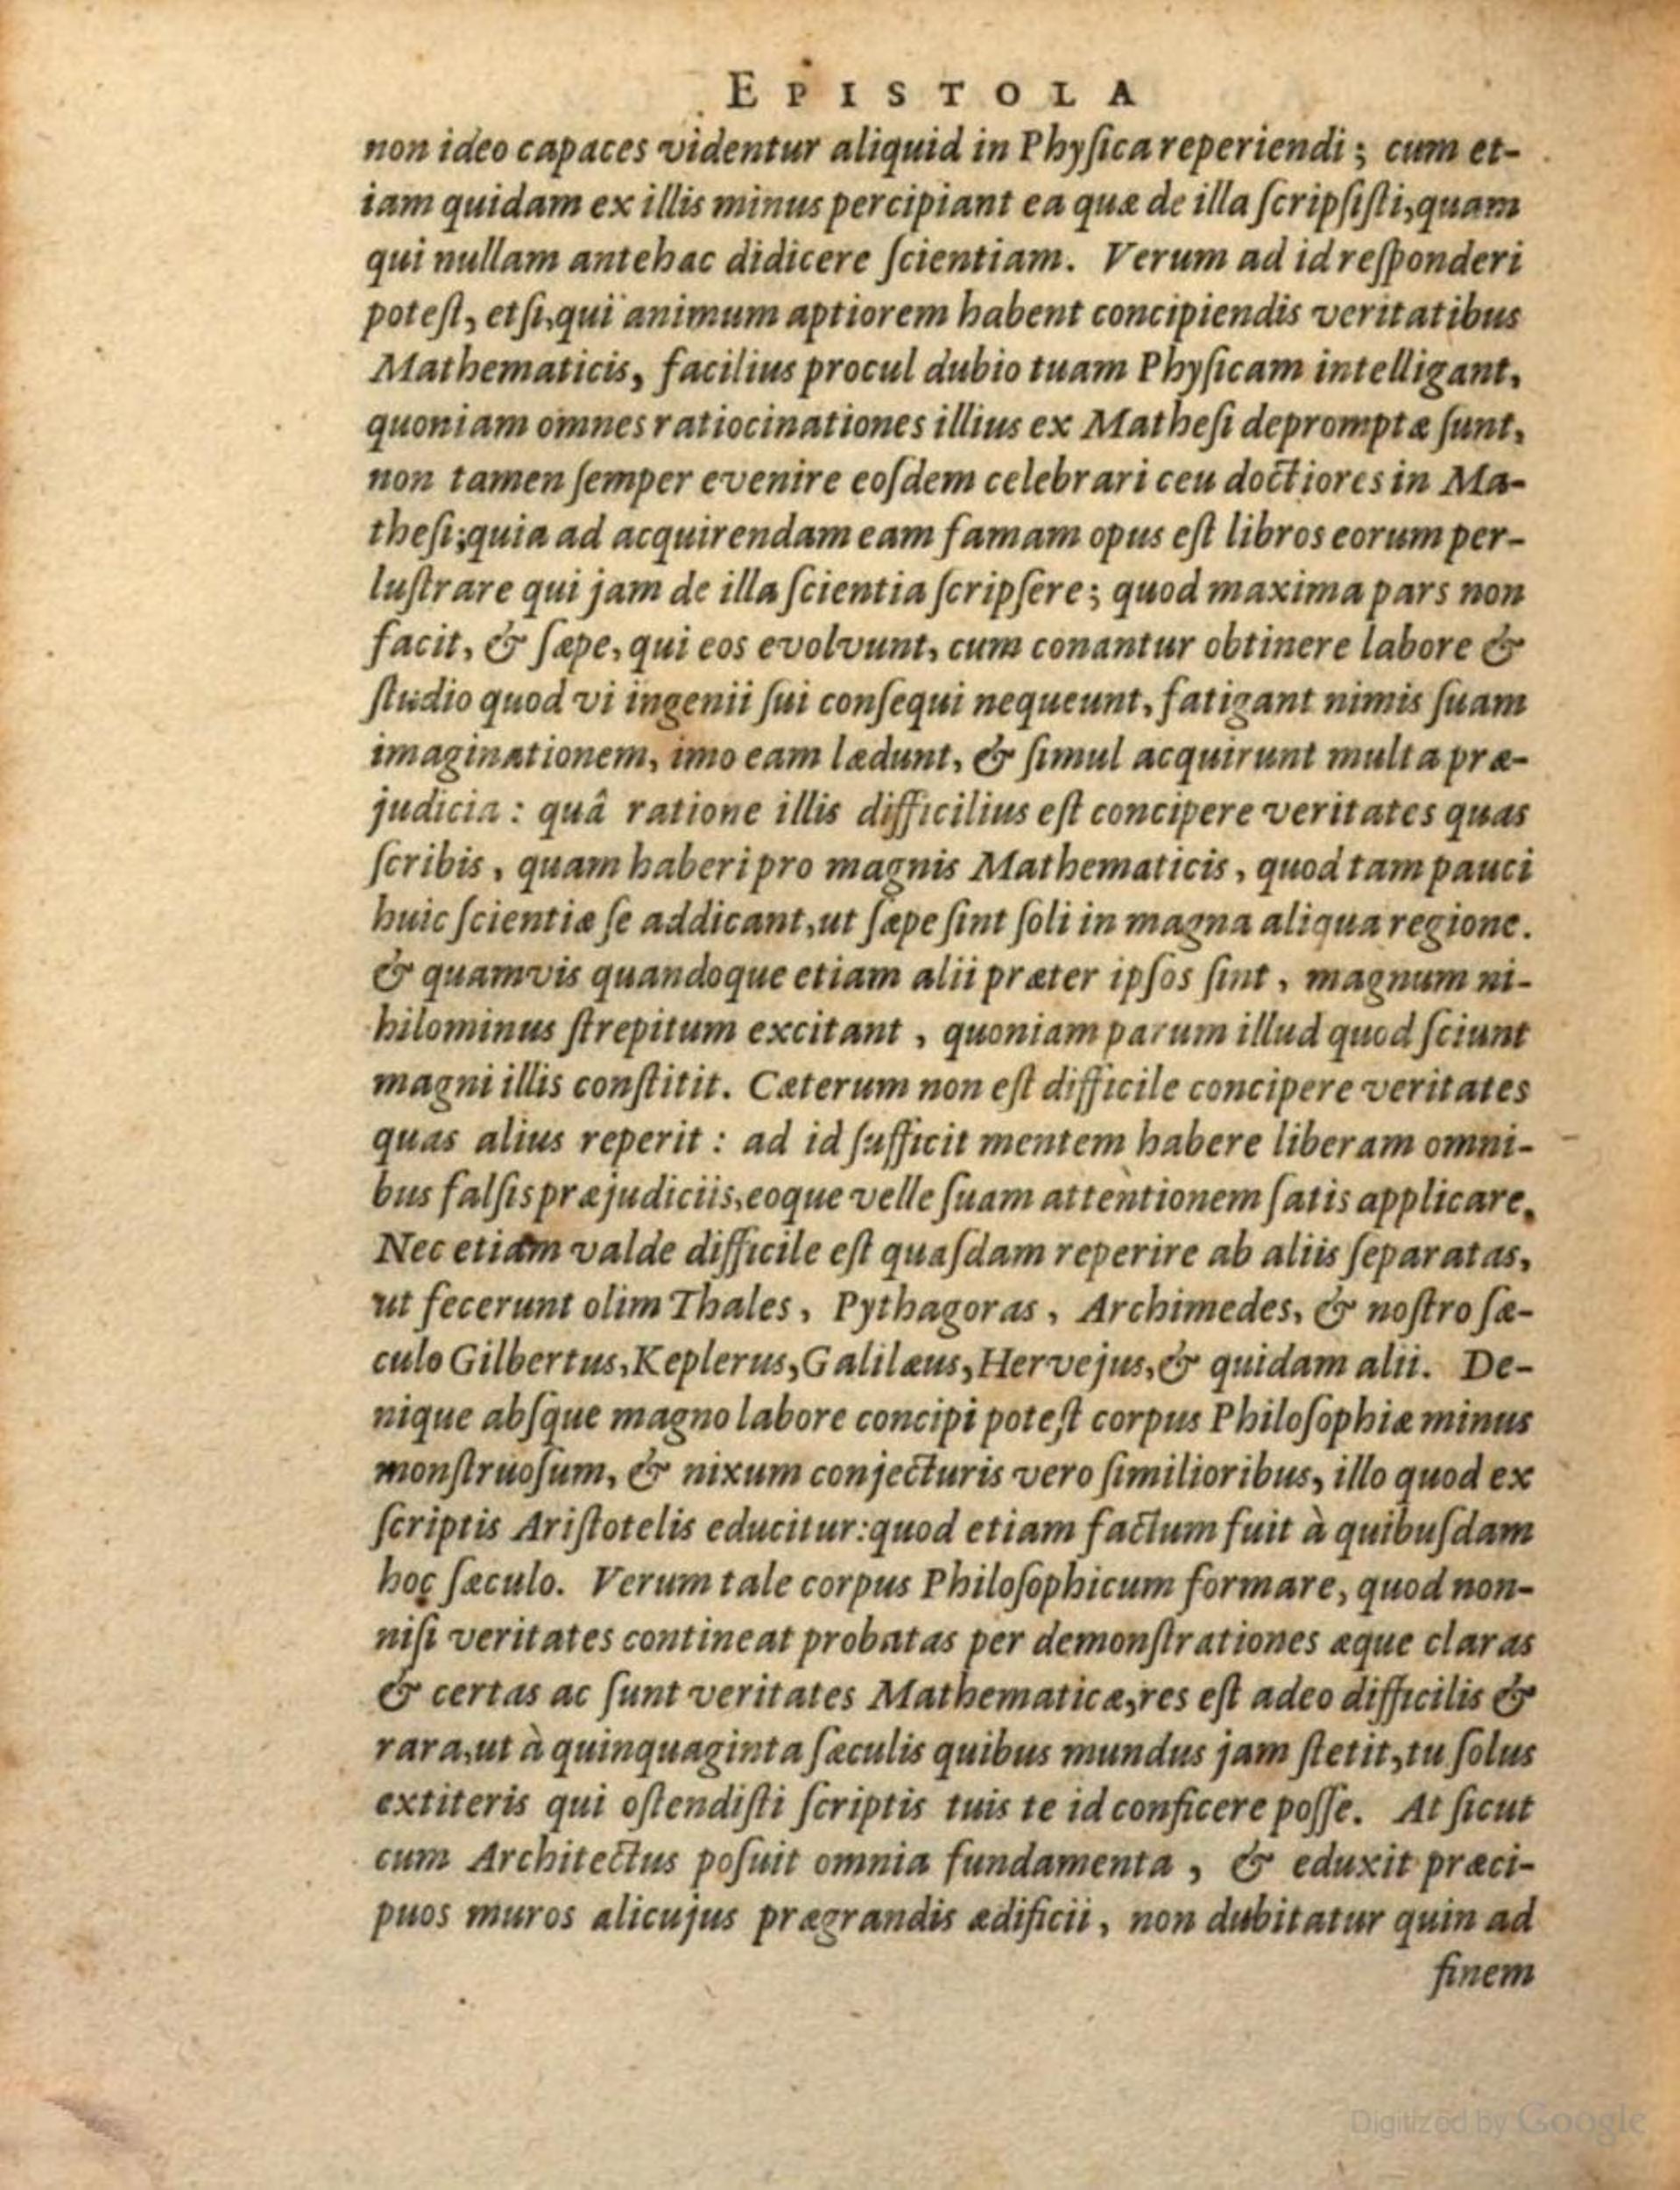 EPISTOLA
non ideo capaces videntur aliquid in Phyſica reperiendi; cum et-
iam quidam ex illis minus percipiant ea quæ de illa ſcripſiſti, quam
qui nullam antehac didicere ſcientiam. Verum ad id reſponderi
poteſt, etſi, qui animum aptiorem habent concipiendis veritatibus
Mathematicis, facilius procul dubio tuam Phyſicam intelligant,
quoniam omnes ratiocinationes illius ex Matheſi depromptæ ſunt,
non tamen ſemper evenire eoſdem celebrari ceu doctiores in Ma-
theſi; quia ad acquirendam eam famam opus eſt libros eorum per-
luſtrare qui jam de illa ſcientia ſcripſere; quod maxima pars non
facit, & ſæpe, qui eos evolvunt, cum conantur obtinere labore &
ſtudio quod vi ingenii ſui conſequi nequeunt, fatigant nimis ſuam
imaginationem, imo eam lædunt, & ſimul acquirunt multa præ-
judicia: quâ ratione illis difficilius eſt concipere veritates quas
ſcribis, quam haberi pro magnis Mathematicis, quod tam pauci
huic ſcientiæ ſe addicant, ut ſæpe ſint ſoli in magna aliqua regione.
& quamvis quandoque etiam alii præter ipſos ſint, magnum ni-
hilominus ſtrepitum excitant, quoniam parum illud quod ſciunt
magni illis conſtitit. Cæterum non eſt difficile concipere veritates
quas alius reperit: ad id ſufficit mentem habere liberam omni-
bus falſis præjudiciis, eoque velle ſuam attentionem ſatis applicare.
Nec etiam valde difficile eſt quaſdam reperire ab aliis ſeparatas,
ut fecerunt olim Thales, Pythagoras, Archimedes, & noſtro ſæ-
culo Gilbertus, Keplerus, Galilæus, Hervejus, & quidam alii. De-
nique abſque magno labore concipi poteſt corpus Philoſophiæ minus
monſtruoſum, & nixum conjecturis vero ſimilioribus, illo quod ex
ſcriptis Ariſtotelis educitur: quod etiam factum fuit à quibuſdam
hoc ſæculo. Verum tale corpus Philoſophicum formare, quod non-
niſi veritates contineat probatas per demonſtrationes æque claras
& certas ac ſunt veritates Mathematicæ, res eſt adeo difficilis &
rara, ut à quinquaginta ſæculis quibus mundus jam ſtetit, tu ſolus
extiteris qui oſtendiſti ſcriptis tuis te id conficere poſſe. At ſicut
cum Architectus poſuit omnia fundamenta, & eduxit præci-
puos muros alicujus prægrandis ædificii, non dubitatur quin ad
finem
Digitized by Google